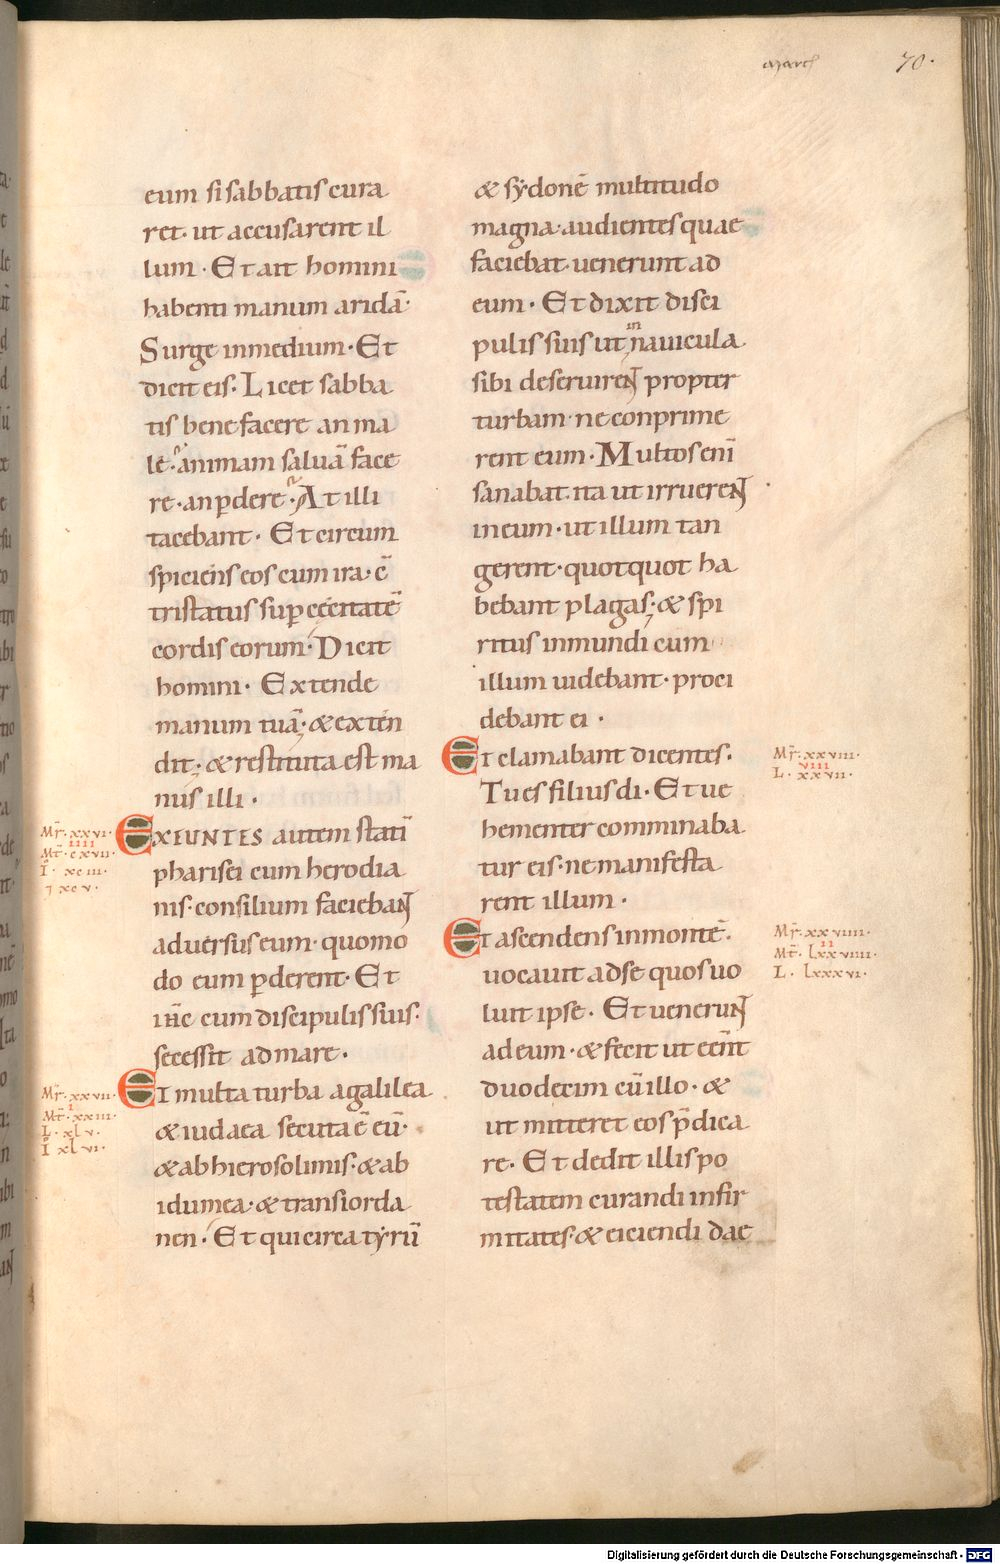 70.
eum si sabbatis cura
ret· ut accusarent il
lum· Et ait homini
habenti manum aridā·
Surge in medium· Et
dicit eis· Licet sabba
tis bene facere an ma
le· animam saluā face
re· an ꝑdere· At illi
tacebant· Et circum
spiciens eos cum ira· c̄
tristatus suꝑ cecitatē
cordis eorum· Dicit
homini· Extende
manum tuā· & exten
dit· & restituta est ma
nus illi·
Mr̄· xxvi·
EXEUNTES autem stati
IIII
Mt̄· cxvii·
pharisei cum herodia
I· xciii·
⁊ xcv·
nis· consilium facieban
aduersus eum· quomo
do eum ꝑderent· Et
ih̄c cum discipulis suis·
secessit ad mare·
Mr̄· xxvii·
Et multa turba a galilea
I
Mt̄· xxiii·
& iudaea secuta ē eū·
L· xlv·
I xlvi·
& ab hierosolimis· & ab
idumea· & trans iorda
nen· Et qui circa tyrū
& sydonē multitudo
magna· audientes quae
faciebat· uenerunt ad
eum· Et dixit disci
pulis suis ut in nauicula
sibi deseruiren propter
turbam· ne conprime
rent eum· Multos enī
sanabat· ita ut irrueren
in eum· ut illum tan
gerent· quotquot ha
bebant plagas· & spi
ritus inmundi cum
illum uidebant· proci
debant ei·
Et clamabant dicentes·
Mr̄· xxviii·
VIII
L· xxvii·
Tu es filius dī· Et ue
hementer comminaba
tur eis· ne manifesta
rent illum·
Et ascendens in montē·
Mr̄· xxviiii·
II
Mt̄· lxxviiii·
uocauit ad se quos uo
L· lxxxvi·
luit ipse· Et uenerun
ad eum· & fecit ut eēnt
duodecim cū illo· &
ut mitteret eos p̄dica
re· Et dedit illis po
testatem curandi infir
mitates· & eiciendi dae
Digitalisierung gefördert durch die Deutsche Forschungsgemeinschaft - DFG